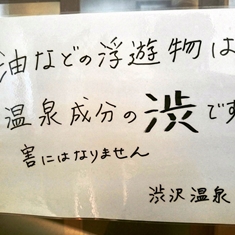 油などの浮遊物は
温泉成分の渋です
害にはなりません
渋沢温泉